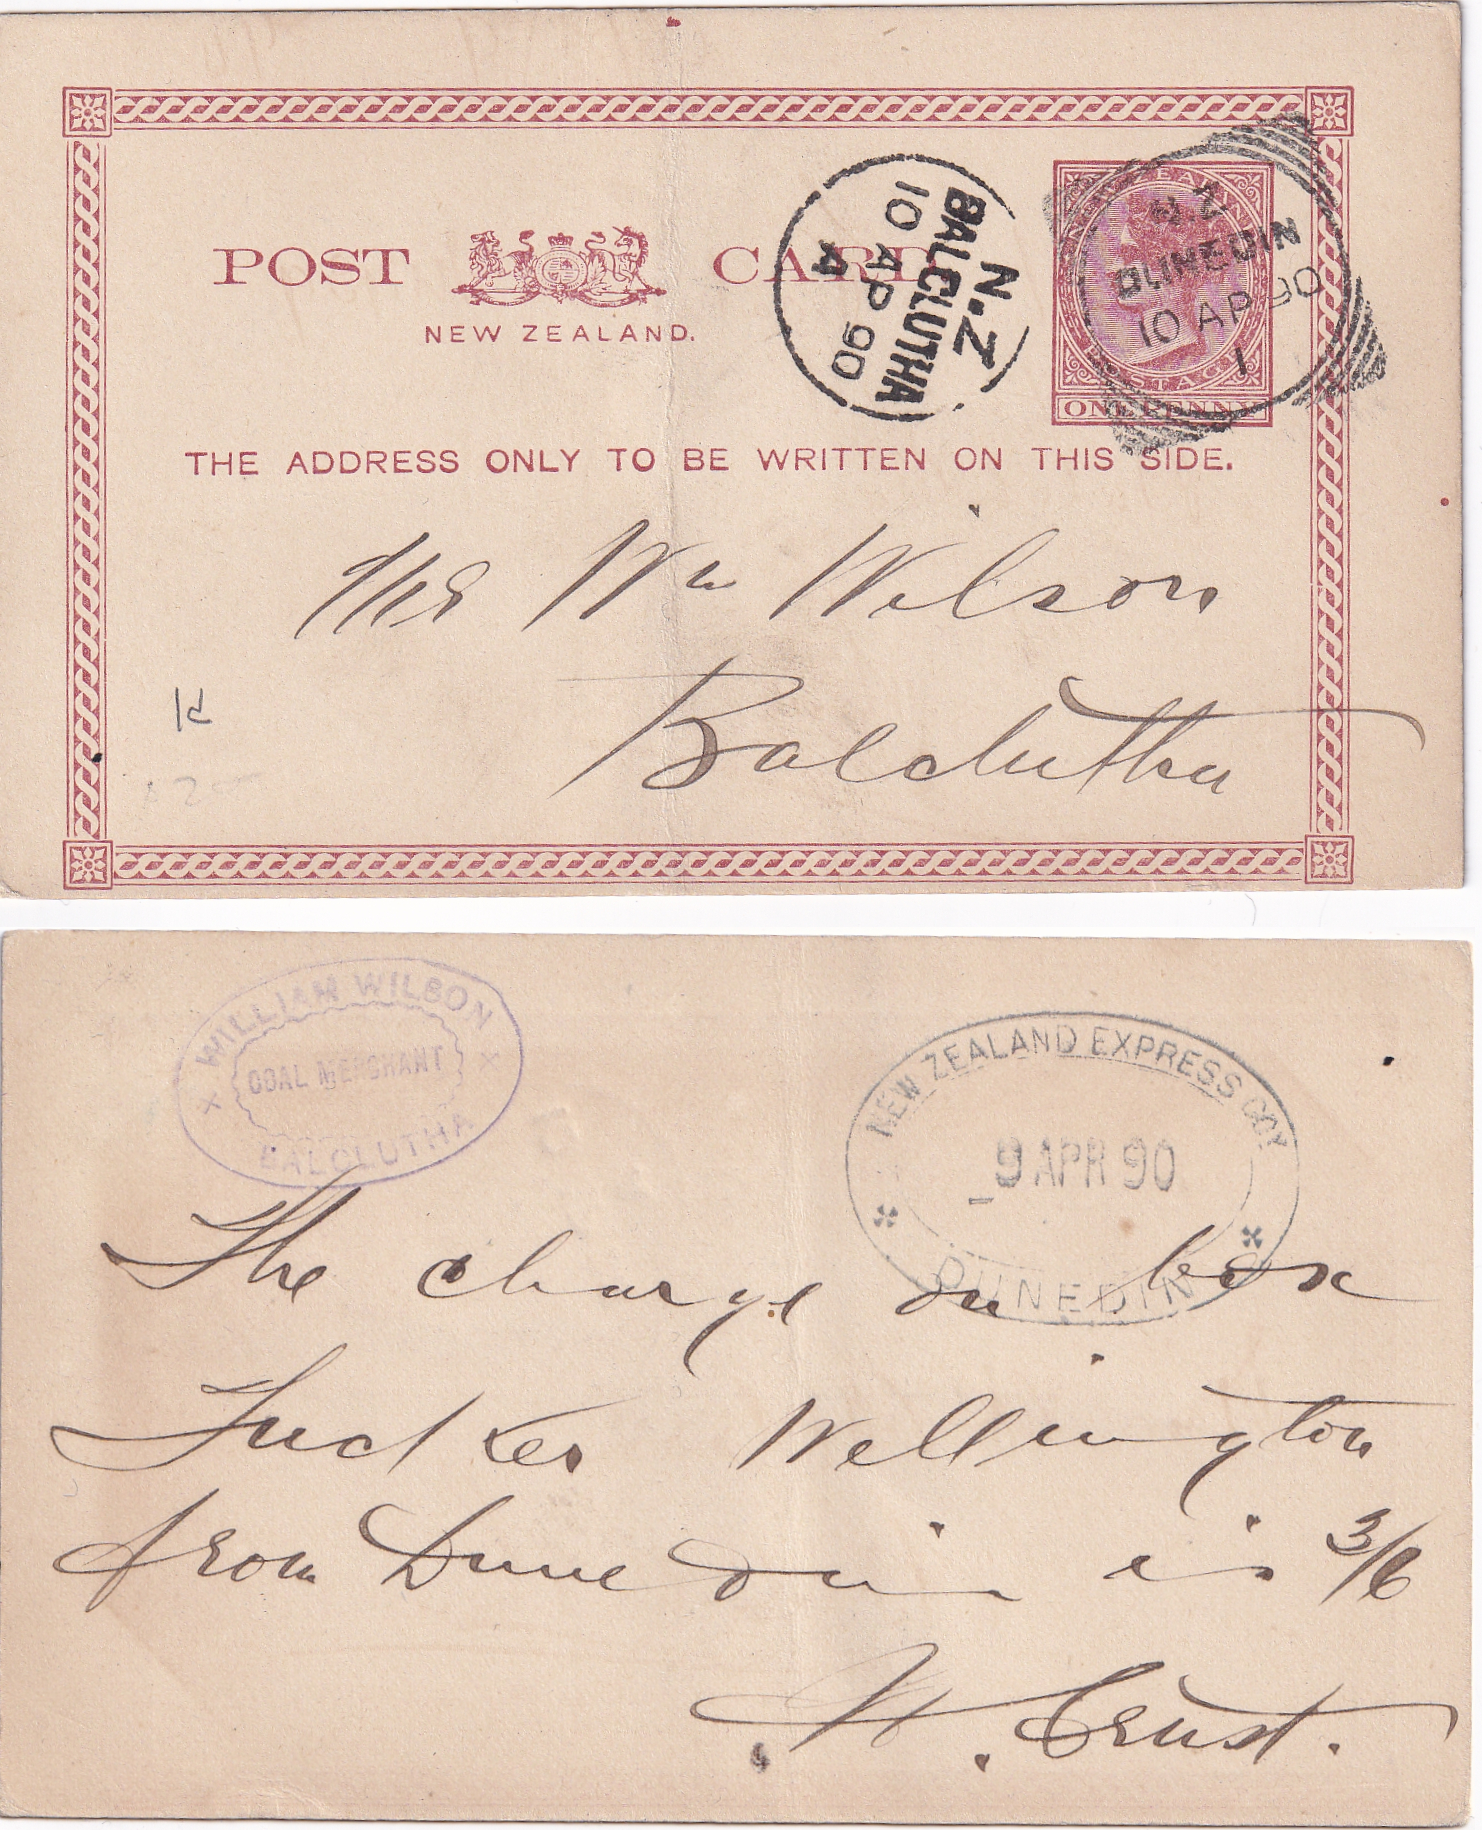 POST CARD
NEW ZEALAND.
N.Z
BALCLUTHA
10 AP 90
A
NEW ZEALAND
POSTAGE
ONE PENNY
N.Z
DUNEDIN
10 AP 90
1
THE ADDRESS ONLY TO BE WRITTEN ON THIS SIDE.
Mr Wm Wilson
Balclutha
WILLIAM WILSON
COAL MERCHANT
BALCLUTHA
NEW ZEALAND EXPRESS COY
9 APR 90
DUNEDIN
The charge on box
Tucker Wellington
from Dunedin is 3/6
W. Crust.